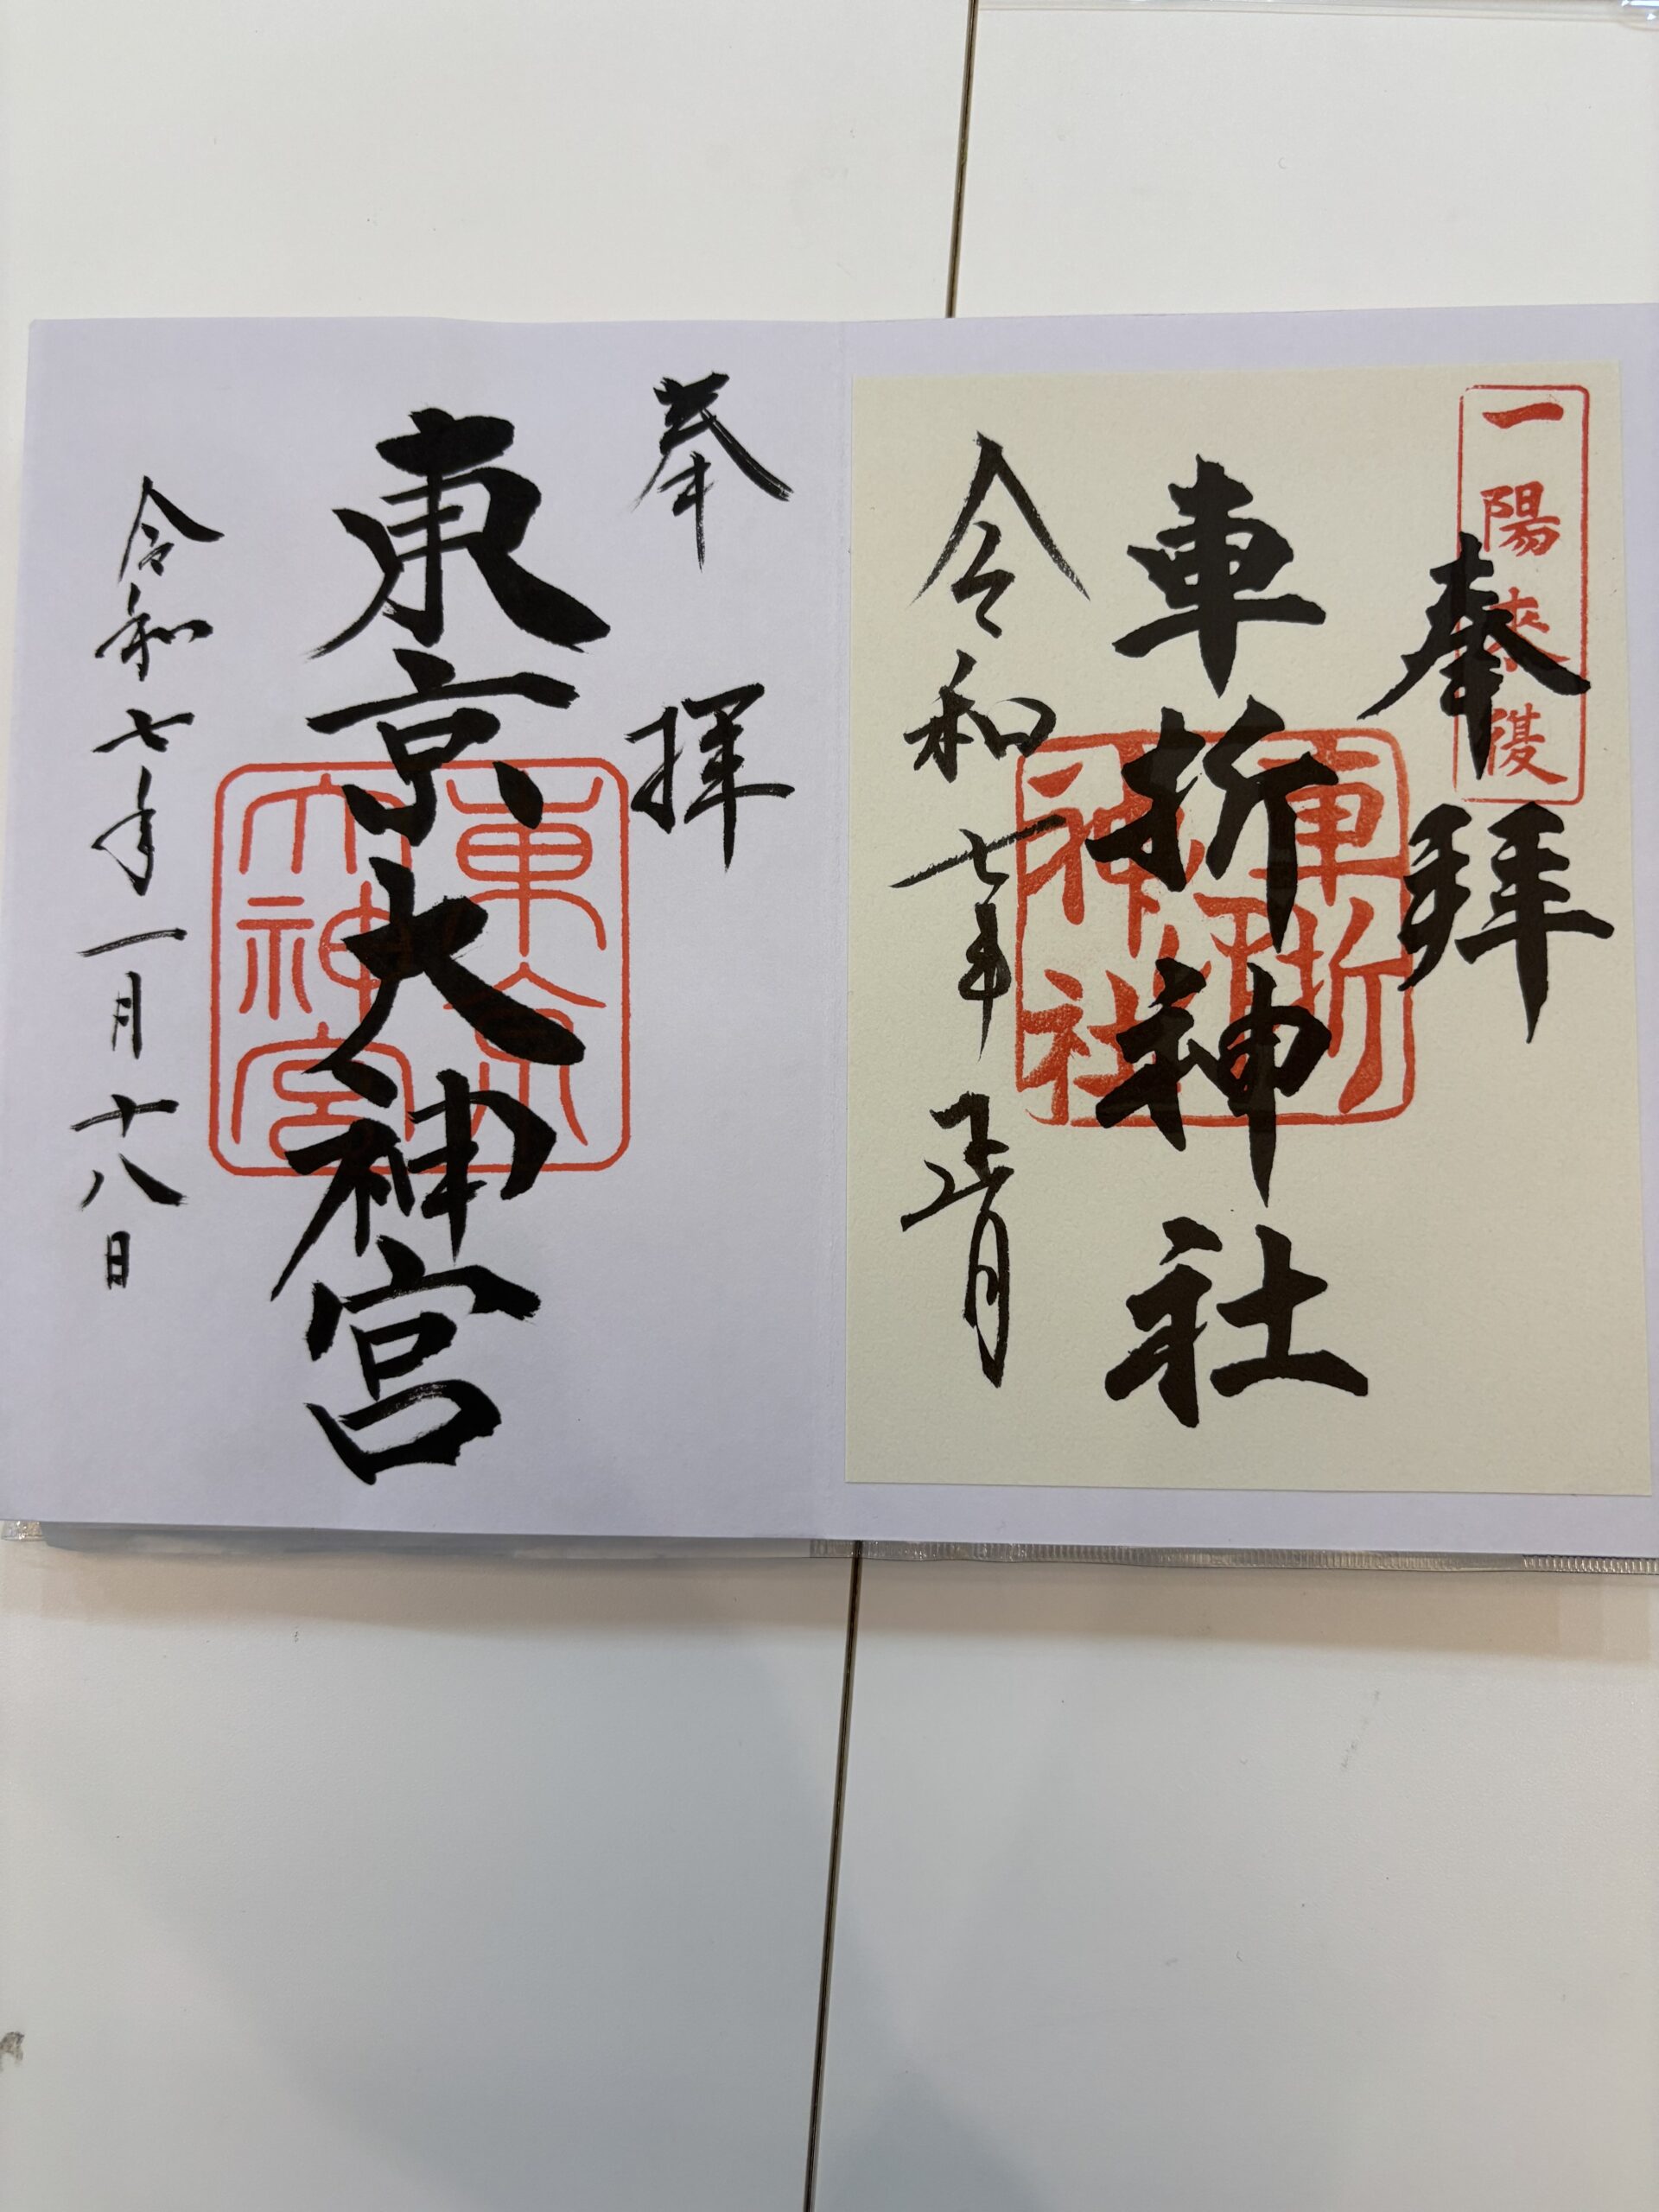 一陽来復
奉拝
車折神社
車折神社
令和七年正月
奉拝
東京大神宮
東京大神宮
令和七年一月十八日